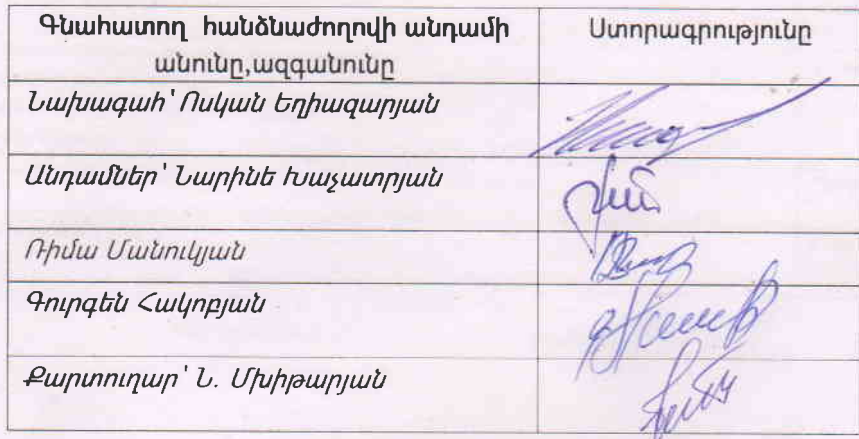 Գնահատող հանձնաժողովի անդամի
անունը,ազգանունը
Ստորագրությունը
Նախագահ՝ Ոսկան Եղիազարյան
Անդամներ՝ Նարինե Խաչատրյան
Ռիմա Մանուկյան
Գուրգեն Հակոբյան
Քարտուղար՝ Ն. Մխիթարյան